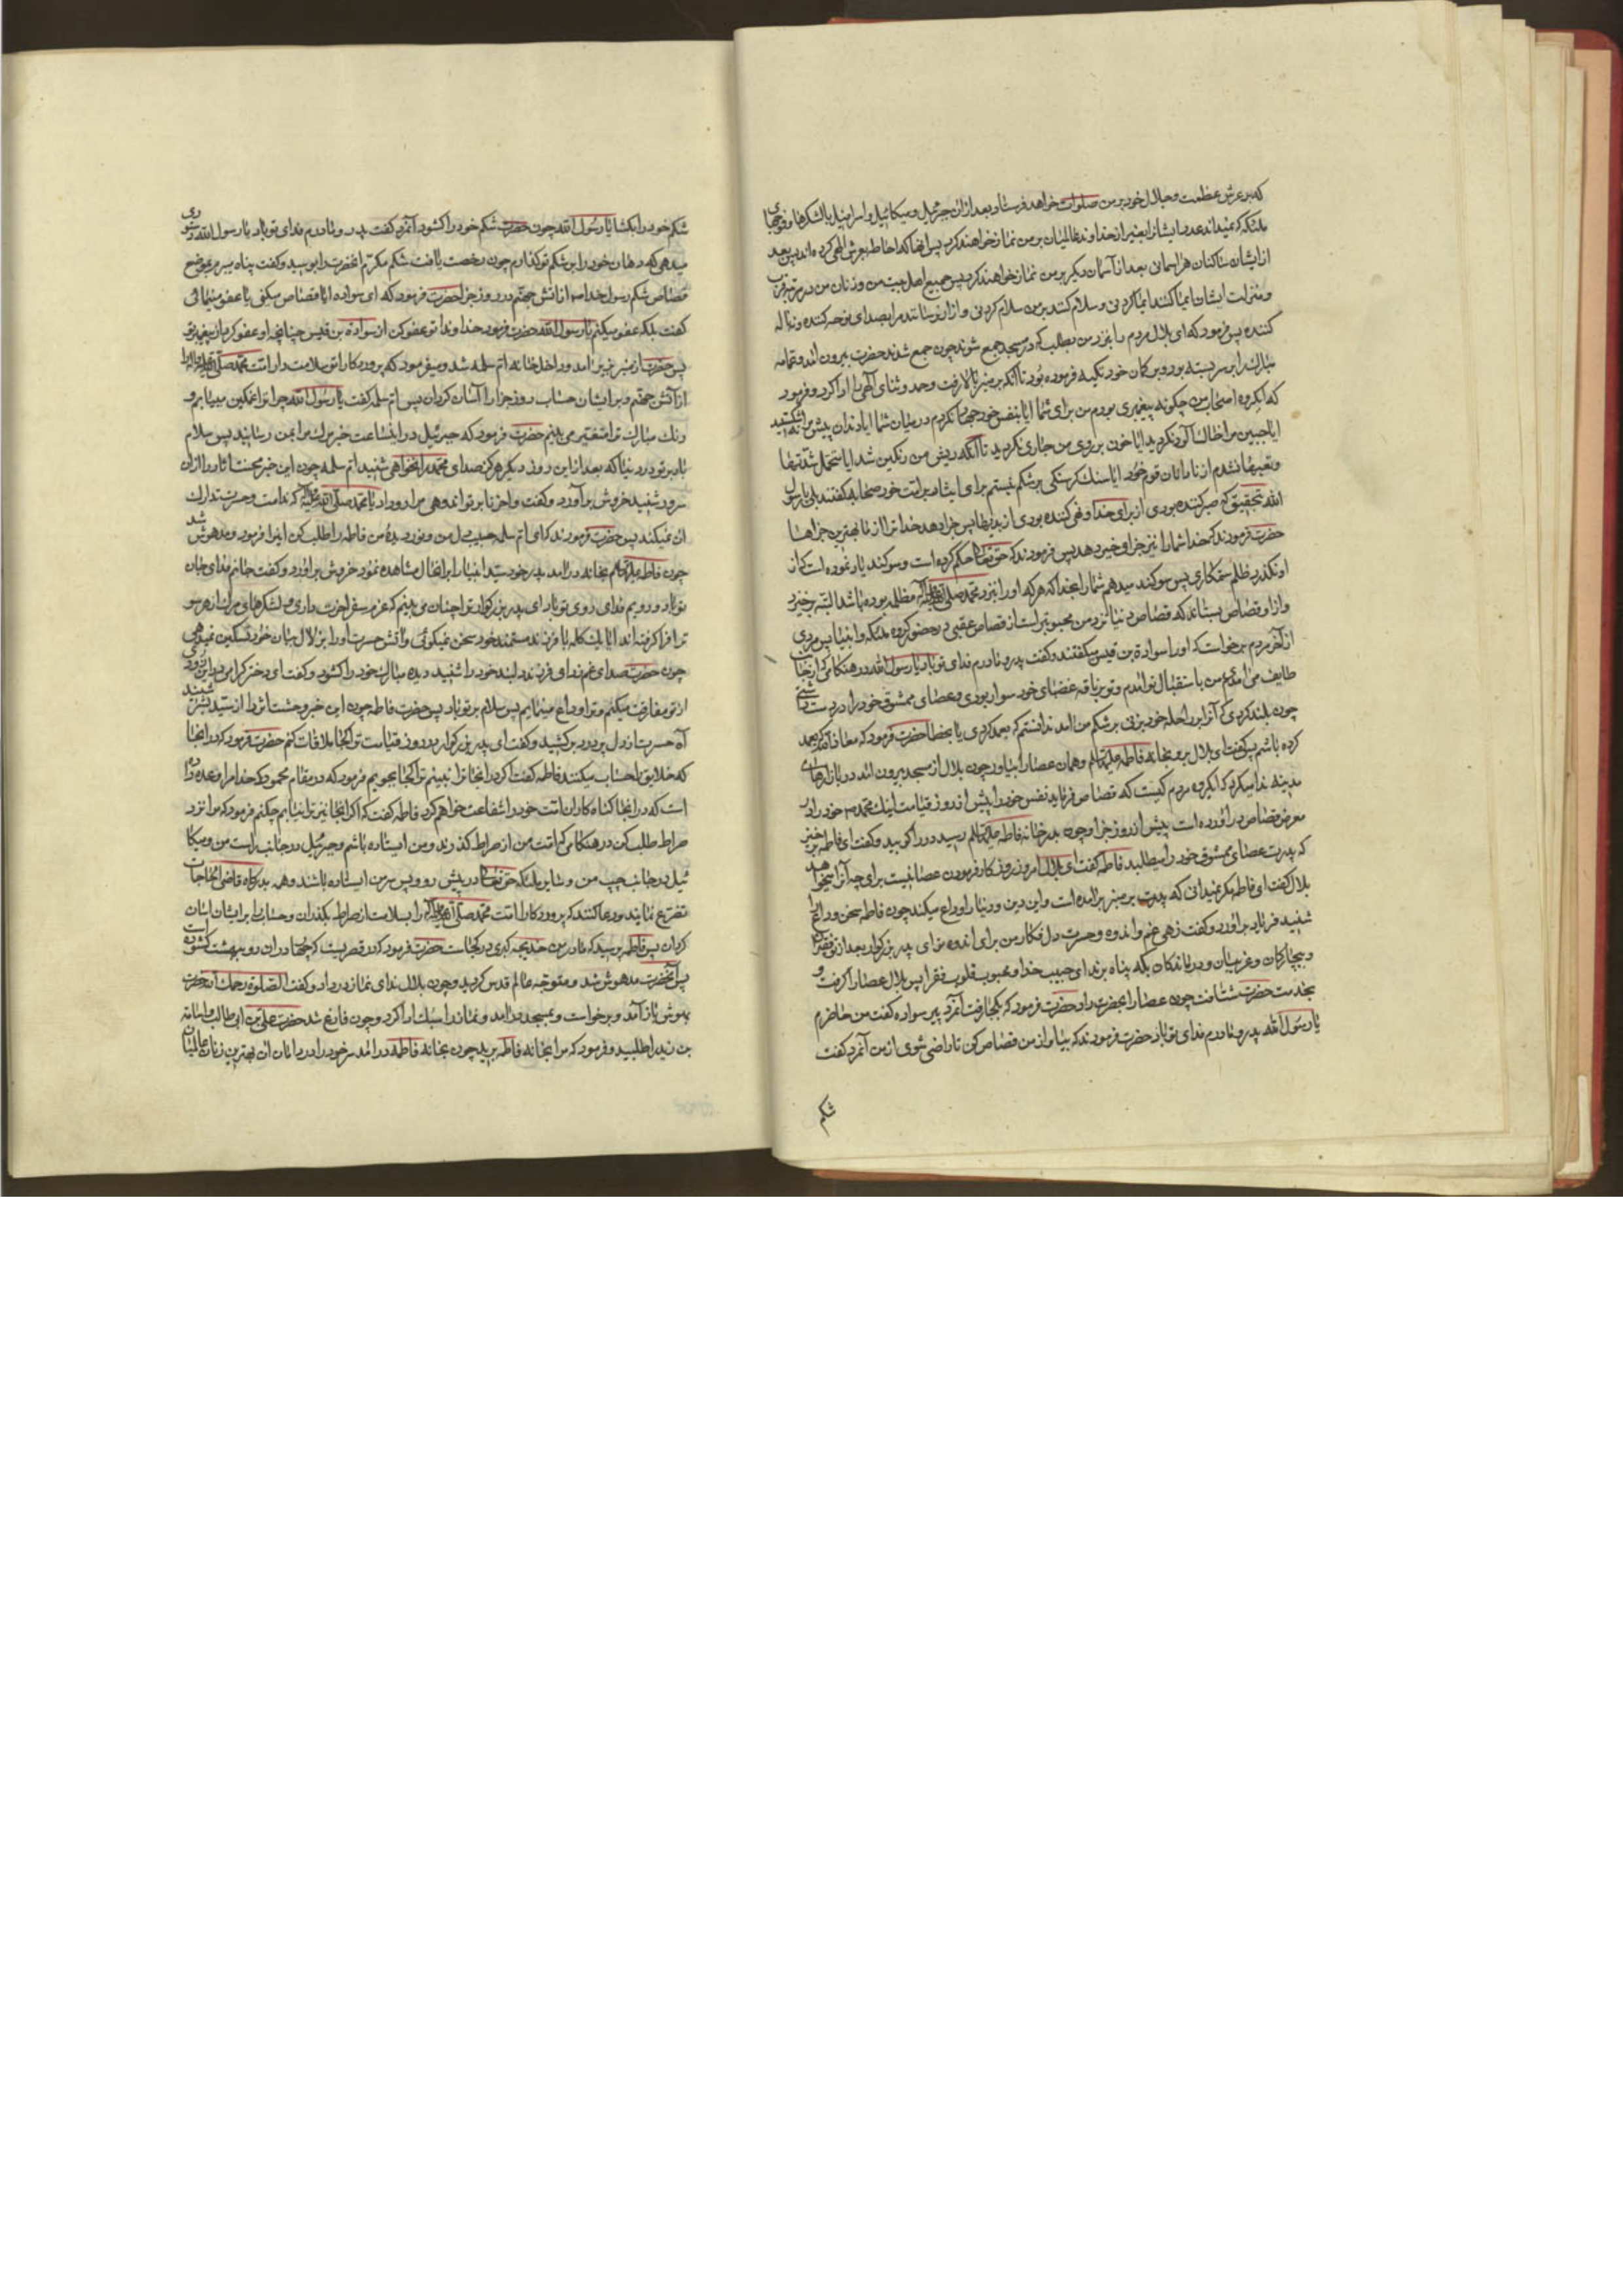 که بر عرش عظمت و جلال خود بر من صلوات خواهد فرستاد و بعد از ان جبرئیل و میکائیل و اسرافیل با لشکرها و فوجهای
ملئکه که نمیداند عدد ایشانرا بغیر از خداوند عالمیان بر من نماز خواهند کرد پس انها که احاطه بعرش الهی کرده اند پس بعد
از ایشان ساکنان هر اسمانی بعد از آسمان دیگر بر من نماز خواهند کرد پس جمیع اهل بیت من و زنان من در مرتبه قرب
و منزلت ایشان ایما کنند ایما کردنی و سلام کنند بر من سلام کردنی و ازار نرسانند مرا بصدای نوحه کننده و ناله
کننده پس فرمود که ای بلال مردم را بنزد من بطلب که در مسجد جمع شوند چون جمع شدند حضرت بیرون امد و عمامه
مبارک را بر سر بسته بود و بر کمان خود تکیه فرموده بود تا آنکه بر منبر بالا رفت و حمد و ثنای آلهی را ادا کرد و فرمود
که ایگروه اصحاب من چگونه پیغمبری بودم من برای شما ایا بنفس خود جهاد نکردم در میان شما ایا دندان پیش مرا نشکستید
ایا جبین مرا خاک آلود نکردید ایا خون بر روی من جاری نکردید تا آنکه ریش من رنگین شد ایا متحمل شدتها
و تعبها نشدم از نادانان قوم خود ایا سنک کرسنکی بر شکم نبستم برای ایثار بر امت خود صحابه گفتند بلی یا رسول
الله بتحقیق که صبر کننده بودی از برای خدا و نهی کننده بودی از بدیها پس جزا دهد خدا ترا از ما بهترین جزاها
حضرت فرمودند که خدا شما را نیز جزای خیر دهد پس فرمودند که حق تعالی حکم کرده است و سوکند یاد نموده است که از
او نگذرد ظلم ستمکاری پس سوکند میدهم شما را بخدا که هر که او را نزد محمد صلی الله علیه و آله مظلمه بوده باشد البته برخیزد
و از او قصاص بستاند که قصاص دنیا نزد من محبوبتر است از قصاص عقبی در حضور کروه ملئکه و انبیا پس مردی
از آخر مردم برخواست که او را سوادة بن قیس میگفتند و گفت پدر و مادرم فدای تو باد یا رسول الله در هنگامی که از جانب
طایف می آمدی من باستقبال تو امدم و تو بر ناقه غضبای خود سوار بودی و عصای ممشوق خود را در دست داشتی
چون بلند کردی که آنرا بر راحله خود بزنی بر شکم من امد ندانستم که بعمد کردی یا بخطا حضرت فرمود که معاذ الله که بعمد
کرده باشم پس گفت ای بلال برو بخانه فاطمه علیها السلم و همان عصا را بیاور چون بلال از مسجد بیرون امد در بازارهای
مدینه ندا میکرد که ایگروه مردم کیست که قصاص فرماید نفس خود را پیش از روز قیامت اینک محمد ص خود را در
معرض قصاص در آورده است پیش از روز جزا و چون بدر خانه فاطمه علیها السلم رسید در را کوبید و گفت ای فاطمه برخیز
که پدرت عصای ممشوق خود را میطلبد فاطمه گفت ای بلال امروز روز کار فرمودن عصا نیست برای چه آنرا میخواهد
بلال گفت ای فاطمه مکر نمیدانی که پدرت بر منبر برامده است و اهل دین و دنیا را وداع میکند چون فاطمه سخن وداع را
شنید فریاد برآورد و گفت زهی غم و اندوه و حسرت دل فکار من برای اندوه تو ای پدر بزرکوار بعد از تو فقیران
و بیچارکان و غریبان و درماندکان بکه پناه برند ای حبیب خدا و محبوب قلوب فقرا پس بلال عصا را گرفت و
بخدمت حضرت شتافت چون عصا را بحضرت داد حضرت فرمود که بکجا رفت آنمرد پیر سواده گفت من حاضرم
یا رسول الله پدر و مادرم فدای تو باد حضرت فرمودند که بیا و از من قصاص کن تا راضی شوی از من آنمرد گفت
شکم
شکم خود را بکشا یا رسول الله چون حضرت شکم خود را کشود آنمرد گفت پدر و مادرم فدای تو باد یا رسول الله دستوری
میدهی که دهان خود را بر شکم تو کذارم چون رخصت یافت شکم مکرم انحضرت را بوسید و گفت پناه میبرم بموضع
قصاص شکم رسول خدا ص از اتش جهنم در روز جزا حضرت فرمود که ای سواده ایا قصاص میکنی یا عفو مینمائی
گفت بلکه عفو میکنم یا رسول الله حضرت فرمود خداوندا تو عفو کن از سوادة بن قیس چنانچه او عفو کرد از پیغمبر تو
پس حضرت از منبر بزیر امد و داخل خانه ام سلمه شد و میفرمود که پروردکارا تو سلامت دار امت محمد صلی الله علیه و اله را
از آتش جهنم و بر ایشان حساب روز جزا را آسان کردان پس ام سلمه گفت یا رسول الله چرا ترا غمکین میبینم و
رنک مبارک ترا متغیر می بینم حضرت فرمود که جبرئیل در اینساعت خبر مرک مرا بمن رسانید پس سلام
باد بر تو در دنیا که بعد از این روز دیگر هرکز صدای محمد را نخواهی شنید ام سلمه چون این خبر محنت اثار را از ان
سرور شنید خروش برآورد و گفت واحزناه بر تو اندوهی مرا رو داد یا محمد صلی الله علیه و اله که ندامت و حسرت تدارک
ان نمیکند پس حضرت فرمودند که ای ام سلمه حبیب دل من و نور دیده من فاطمه را طلب کن اینرا فرمود و مدهوش شد
چون فاطمه علیها السلم بخانه درامد پدر خود سید انبیا را بر انحال مشاهده نمود خروش براورد و گفت جانم فدای جان
تو باد و رویم فدای روی تو باد ای پدر بزرکوار ترا چنان می بینم که عزم سفر اخرت داری و لشکرهای مرک از هر سو
ترا فرا کرفته اند ایا یک کلمه با فرزند مستمند خود سخن نمیکوئی و آتش حسرت او را بزلال بیان خود تسکین نمیدهی
چون حضرت صدای غم زدای فرزند دلبند خود را شنید دیده مبارک خود را کشود و گفت ای دختر کرامی در این زودی
از تو مفارقت میکنم و ترا وداع مینمایم پس سلام بر تو باد پس حضرت فاطمه چون این خبر وحشت اثر را از سید بشر شنید
آه حسرت از دل پر درد برکشید و گفت ای پدر بزرکوار در روز قیامت ترا کجا ملاقات کنم حضرت فرمود که در انجا
که خلایق را حساب میکنند فاطمه گفت اکر در انجا ترا نبینم ترا کجا بجویم فرمود که در مقام محمود که خدا مرا وعده داده
است که در انجا کناه کاران امت خود را شفاعت خواهم کرد فاطمه گفت که اکر انجا نیز ترا نیابم چکنم فرمود که مرا نزد
صراط طلب کن در هنکامی که امت من از صراط گذرند و من ایستاده باشم و جبرئیل در جانب راست من و میکا
ئیل در جانب چپ من و سایر ملئکه حق تعالی در پیش رو و پس سر من ایستاده باشند و همه بدرکاه قاضی الحاجات
تضرع نمایند و دعا کنند که پروردکارا امت محمد صلی الله علیه و اله را بسلامت از صراط بکذران و حساب را بر ایشان اسان
کردان پس فاطمه پرسید که مادر من خدیجه کبری در کجاست حضرت فرمود که در قصریست که چهار در ان رو ببهشت کشوده است
پس آنحضرت مدهوش شد و متوجه عالم قدس کردید و چون بلال ندای نماز در داد و گفت الصلوة رحمک الله حضرت
بهوش باز آمد و برخواست و بمسجد درامد و نماز را سبک ادا کرد و چون فارغ شد حضرت علی بن ابی طالب و اسامة
بن زید را طلبید و فرمود که مرا بخانه فاطمه برید چون بخانه فاطمه درامد سر خود را در دامان ان بهترین زنان عالمیان